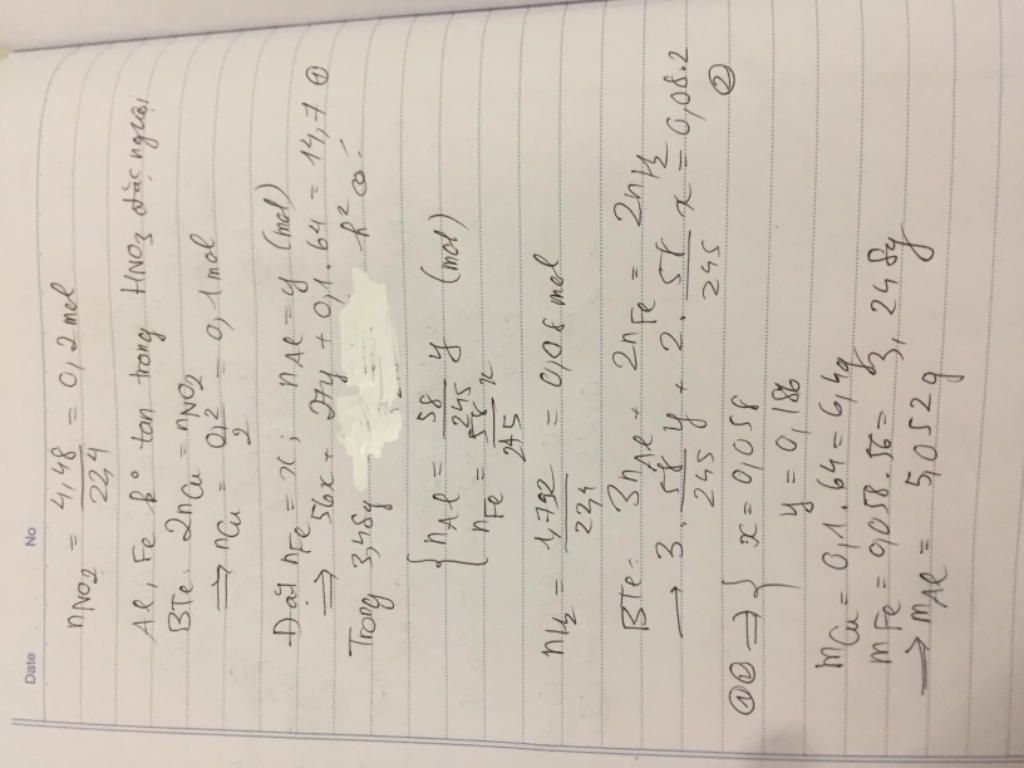 Date No
nNO2 = 4,48/22,4 = 0,2 mol
Al, Fe ko tan trong HNO3 đặc nguội
BTe: 2nCu = nNO2
⇒ nCu = 0,2/2 = 0,1 mol
Đặt nFe = x; nAl = y (mol)
⇒ 56x + 27y + 0,1.64 = 14,7 ①
Trong 3,48g h² có:
{ nAl = 58/245 y (mol)
nFe = 58/245 x
nH2 = 1,792/22,4 = 0,08 mol
BTe: 3nAl + 2nFe = 2nH2
→ 3.58/245 y + 2.58/245 x = 0,08.2 ②
①② ⇒ { x = 0,058
y = 0,186
mCu = 0,1.64 = 6,4g
mFe = 0,058.56 = 3,248g
→ mAl = 5,052g